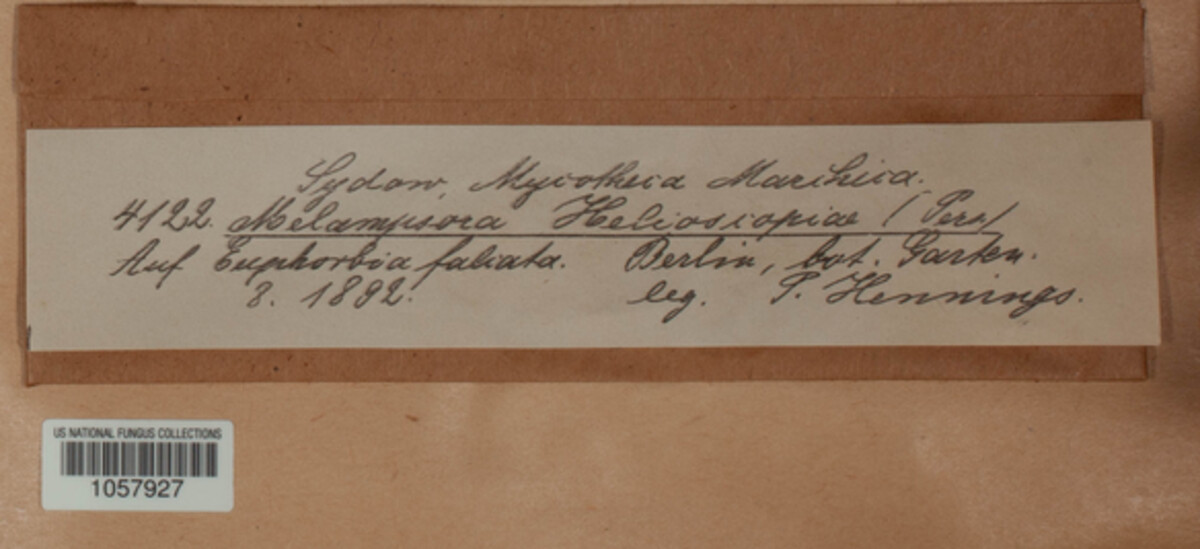 Sydow, Mycotheca Marchica.
4122. Melampsora Helioscopiae (Pers)
Auf Euphorbia falcata. Berlin, bot. Garten.
8. 1892. leg. P. Hennings.
US NATIONAL FUNGUS COLLECTIONS
1057927